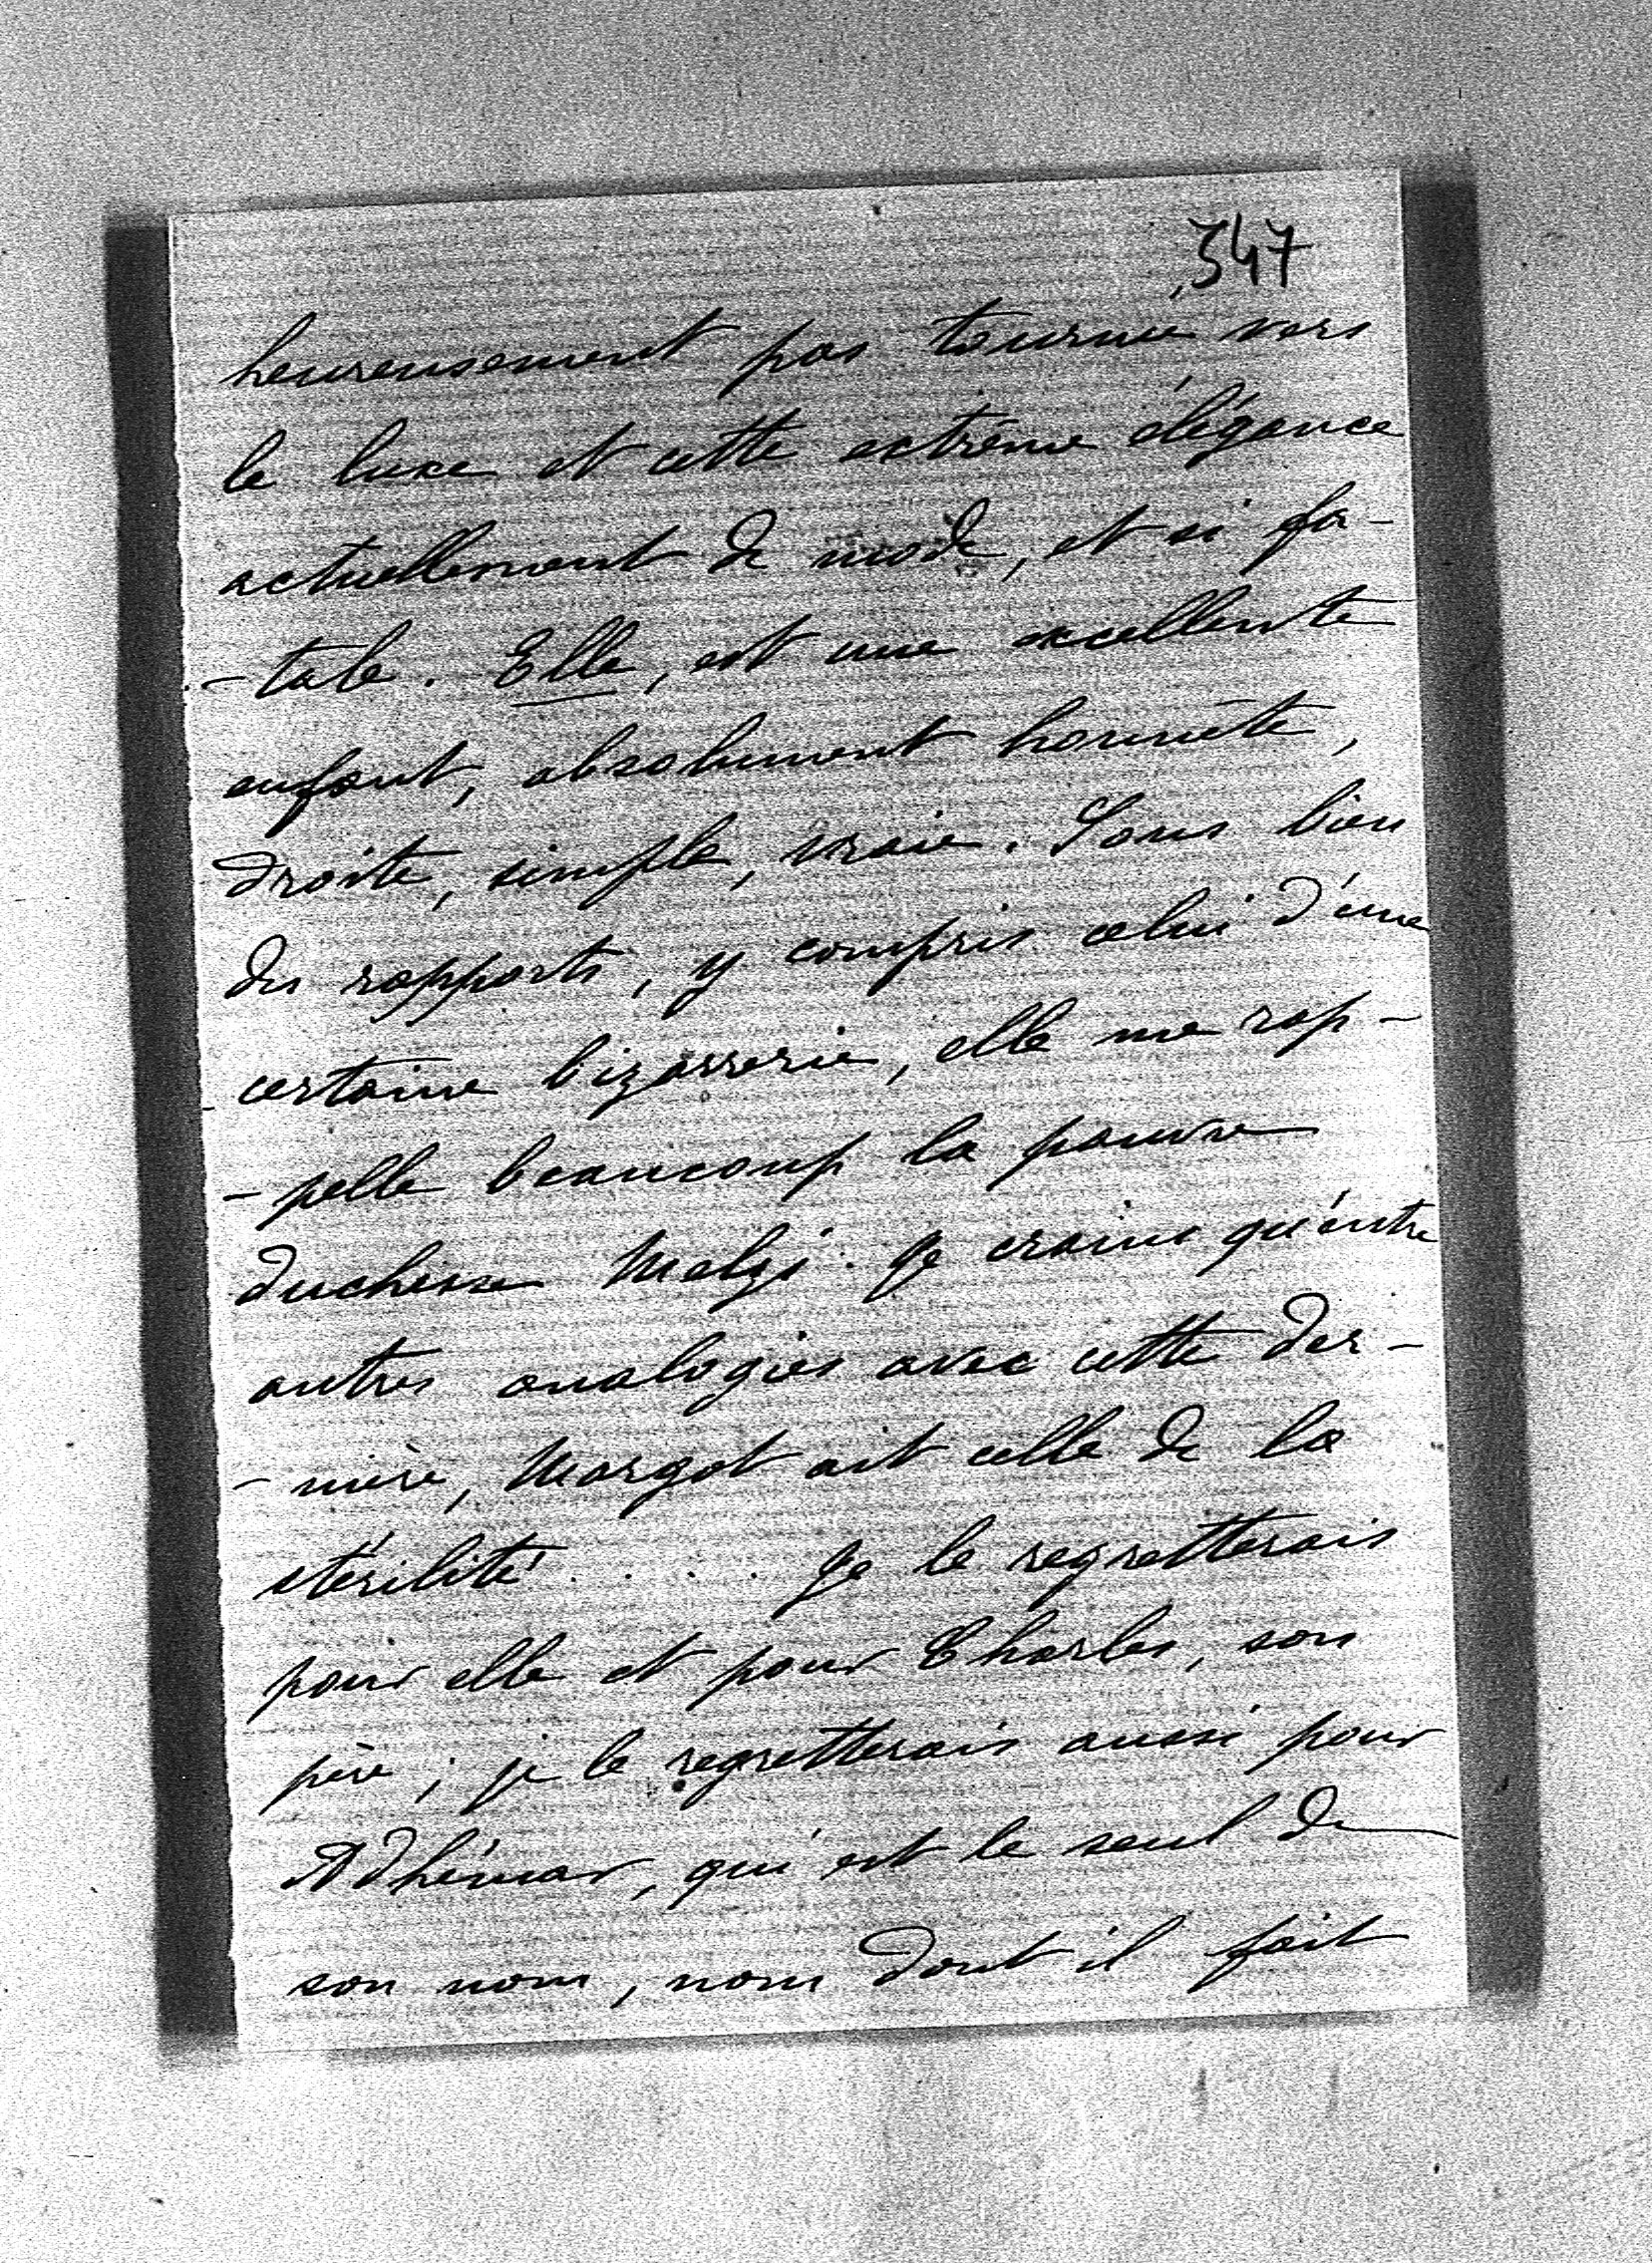 347
heureusement pas tournée vers
le luxe et cette extrême élégance
actuellement de mode, et si fa-
-tale. Elle, est une excellente
enfant, absolument honnête,
droite, simple, vraie. Sous bien
des rapports, y compris celui d'une
certaine bizarrerie, elle me rap-
-pelle beaucoup la pauvre
duchesse Melzi. Je crains qu'entre
autres analogies avec cette der-
-nière, Margot ait celle de la
stérilité . . . . . Je le regretterais
pour elle et pour Charles, son
père ; je le regretterais aussi pour
Adhémar, qui est le seul de
son nom, nom dont il fait